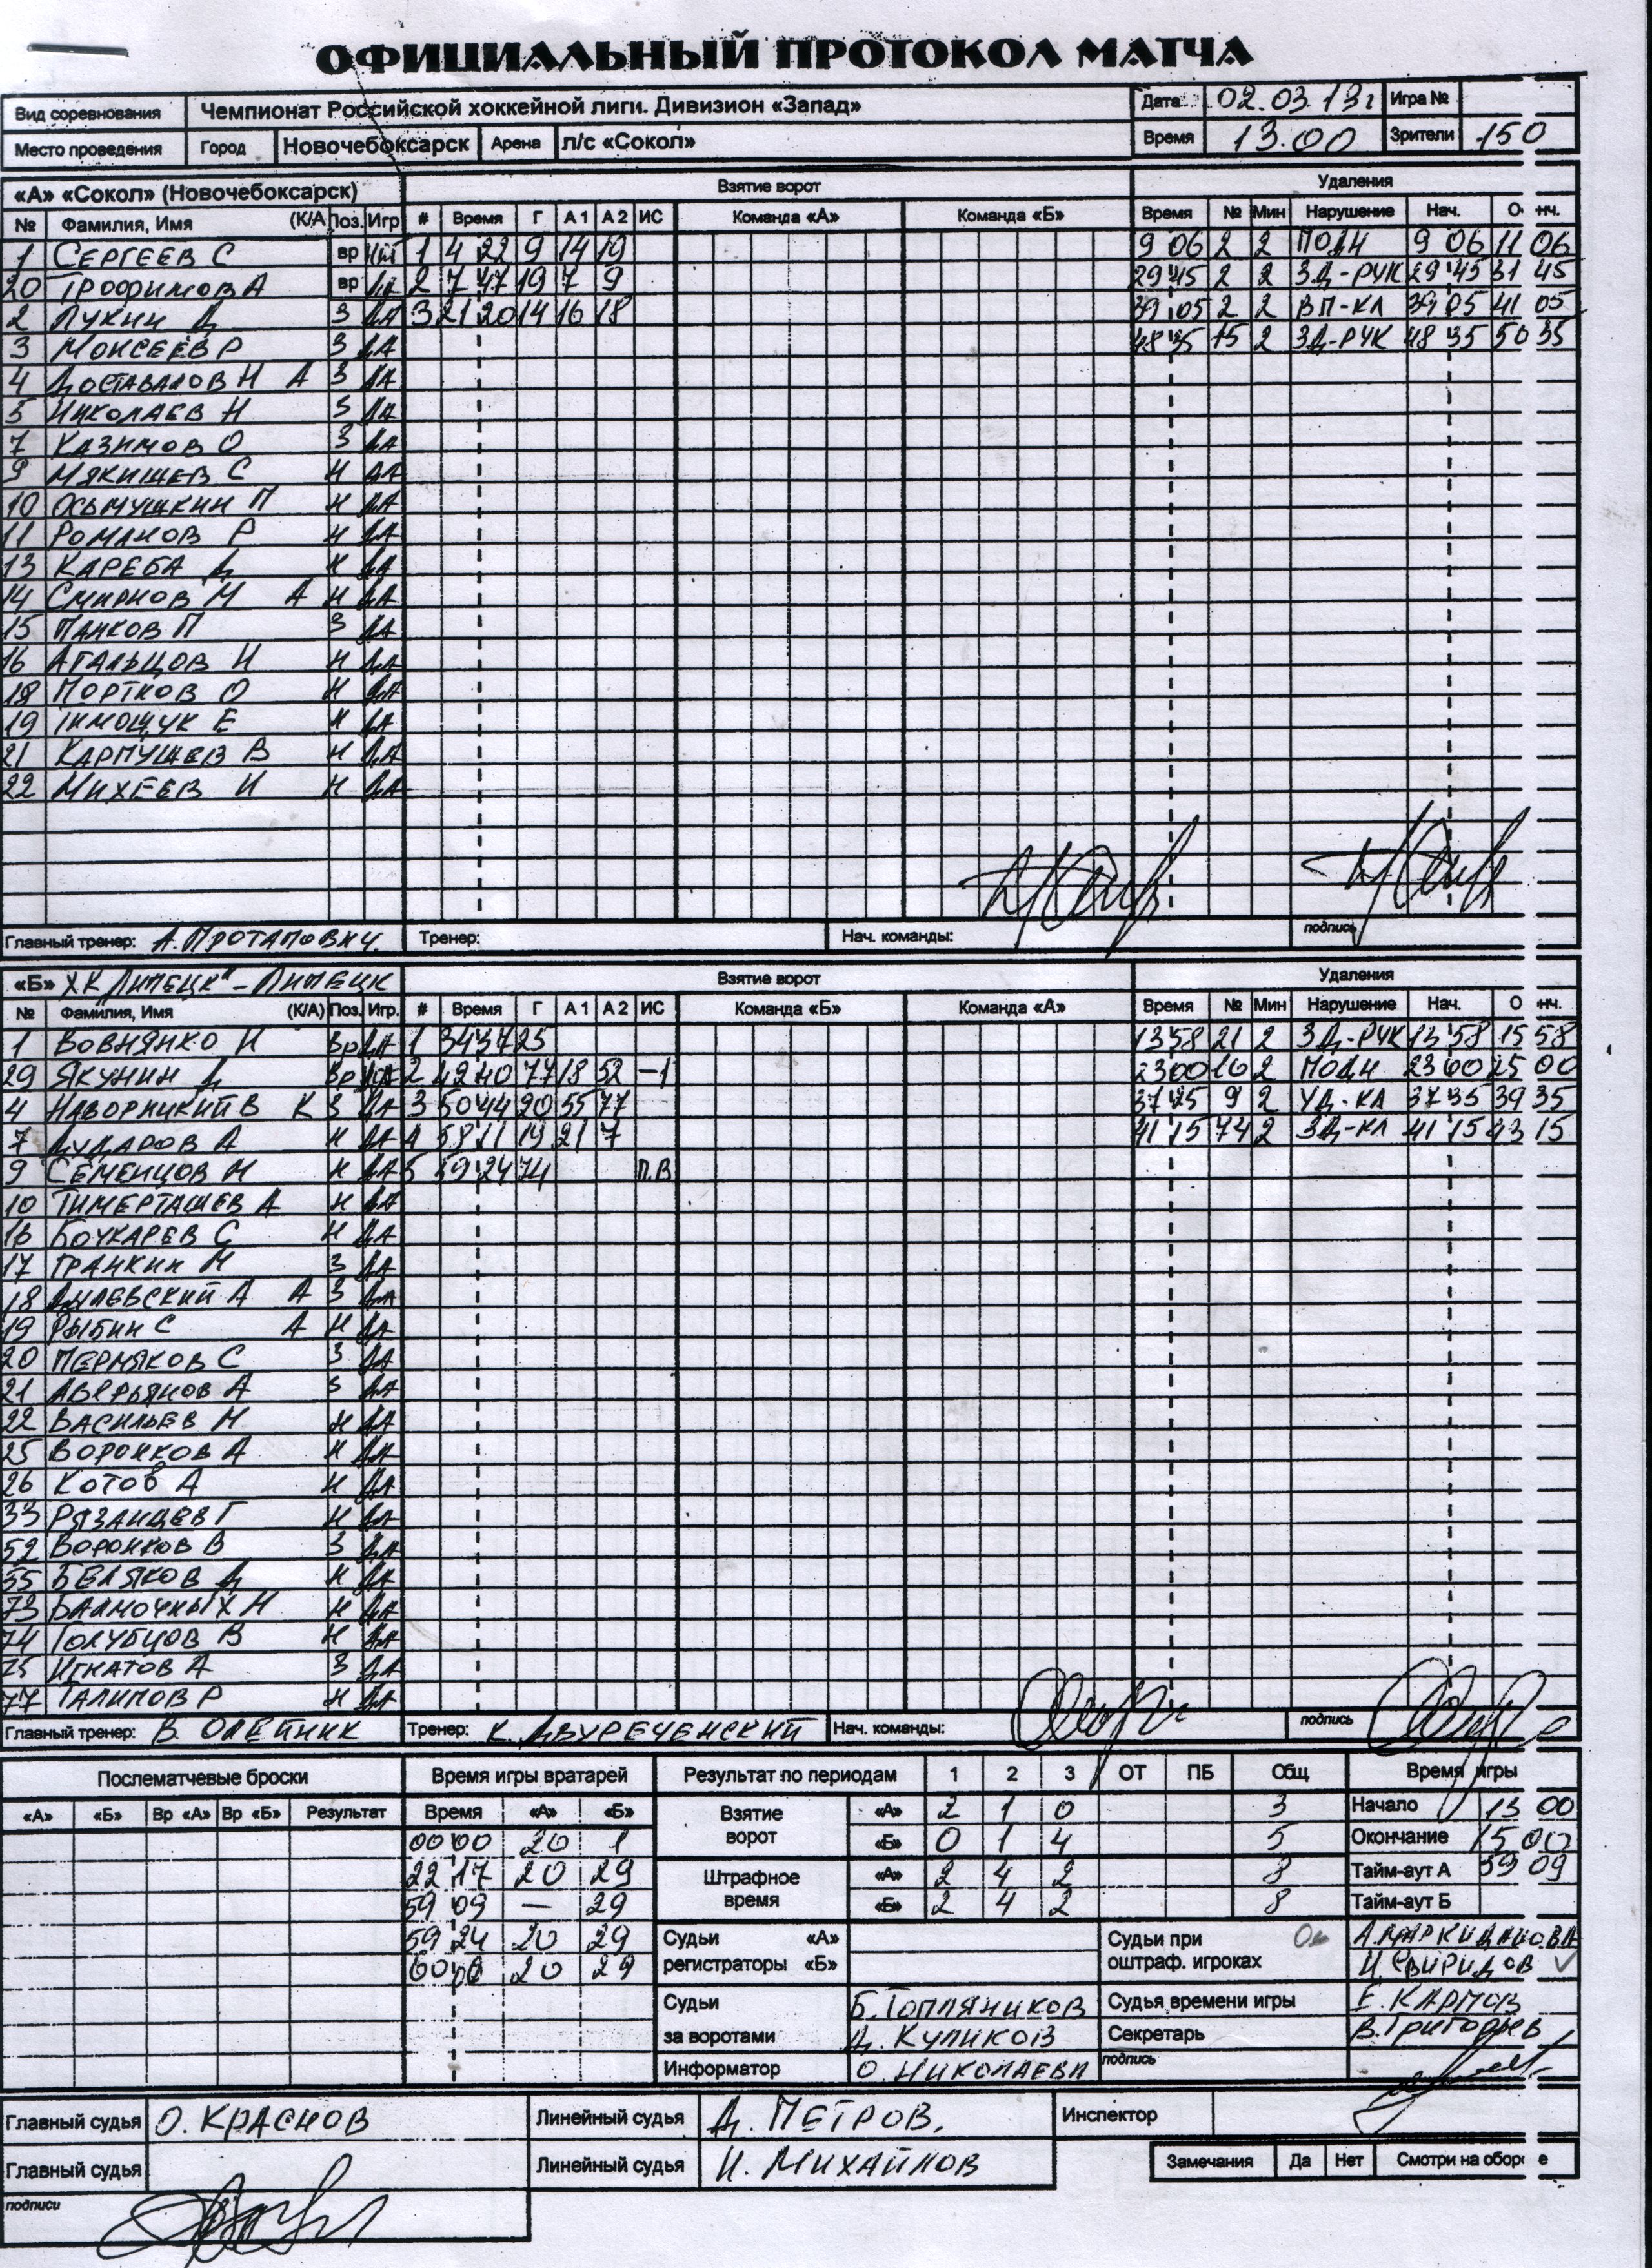 ОФИЦИАЛЬНЫЙ ПРОТОКОЛ МАТЧА
Вид соревнования Чемпионат Российской хоккейной лиги. Дивизион «Запад» Дата 02.03.13г Игра №
Место проведения Город Новочебоксарск Арена л/с «Сокол» Время 13.00 Зрители 150
«А» «Сокол» (Новочебоксарск) Взятие ворот Удаления
№ Фамилия, Имя (К/А) Поз. Игр # Время Г А1 А2 ИС Команда «А» Команда «Б» Время № Мин Нарушение Нач. О нч.
1 СЕРГЕЕВ С вр 1 4 22 9 14 19 9 06 2 2 ПОДН 9 06 11 06
20 ТРОФИМОВ А вр 2 7 47 19 7 9 29 45 2 2 ЗД-РУК 29 45 31 45
2 ЛУКИН Д З ДА 3 21 20 14 16 18 39 05 2 2 ВП-КЛ 39 05 41 05
3 МОИСЕЕВ Р З ДА 48 35 15 2 ЗД-РУК 48 35 50 35
4 ДОСТАВАЛОВ Н А З ДА
5 НИКОЛАЕВ Н З ДА
7 КАЗИМОВ О З ДА
9 МЯКИШЕВ С Н ДА
10 ОСЬМУШКИН П Н ДА
11 РОМАНОВ Р Н ДА
13 КАРЕБА Д Н ДА
14 СМИРНОВ М А Н ДА
15 ПАНКОВ П З ДА
16 АГАЛЬЦОВ И Н ДА
18 ПОРТНОВ О Н ДА
19 ТИМОЩУК Е Н ДА
21 КАРПУШЕВ В Н ДА
22 МИХЕЕВ И Н ДА
Главный тренер: А.ПРОТАПОВИЧ. Тренер: Нач. команды: подпись
«Б» ХК "ЛИПЕЦК" - ЛИПЕЦК Взятие ворот Удаления
№ Фамилия, Имя (К/А) Поз. Игр. # Время Г А1 А2 ИС Команда «Б» Команда «А» Время № Мин Нарушение Нач. О нч.
1 ВОВНЯНКО И Вр ДА 1 34 37 25 13 58 21 2 ЗД-РУК 13 58 15 58
29 ЯКУНИН Д Вр ДА 2 42 40 77 18 52 -1 23 00 16 2 ПОДН 23 00 25 00
4 НАВОРНИКИЙ В К З ДА 3 50 44 20 55 77 37 35 9 2 УД-КЛ 37 35 39 35
7 ДУДАРОВ А Н ДА 4 58 11 19 21 7 41 15 74 2 ЗД-КЛ 41 15 43 15
9 СЕМЕНЦОВ М Н ДА 5 59 24 74 П.В
10 ТИМЕРТАШЕВ А Н ДА
16 БОЧКАРЕВ С Н ДА
17 ГРАНКИН М З ДА
18 ДЫЛЕВСКИЙ А А З ДА
19 РЫБИН С А Н ДА
20 ПЕРМЯКОВ С З ДА
21 АВЕРЬЯНОВ А З ДА
22 ВАСИЛЬЕВ М Н ДА
25 ВОРОНКОВ А Н ДА
26 КОТОВ А Н ДА
33 РЯЗАНЦЕВ Г Н ДА
52 ВОРОНКОВ В З ДА
55 БЕЛЯКОВ Д Н ДА
73 БАЛМОЧНЫХ Н Н ДА
74 ГОЛУБЦОВ В Н ДА
75 ИГНАТОВ А З ДА
77 ГАЛИПОВ Р Н ДА
Главный тренер: В. ОЛЕЙНИК Тренер: К. ДВУРЕЧЕНСКИЙ Нач. команды: подпись
Послематчевые броски Время игры вратарей Результат по периодам 1 2 3 ОТ ПБ Общ Время игры
«А» «Б» Вр «А» Вр «Б» Результат Время «А» «Б» Взятие ворот «А» 2 1 0 3 Начало 13 00
00 00 20 1 «Б» 0 1 4 5 Окончание 15 00
22 17 20 29 Штрафное время «А» 2 4 2 8 Тайм-аут А 59 09
59 09 — 29 «Б» 2 4 2 8 Тайм-аут Б
59 24 20 29 Судьи «А» Судьи при А.МАРКИДАНОВА
60 00 20 29 регистраторы «Б» оштраф. игроках И.СВИРИДОВ
Судьи Б.ТОПЛЯНИКОВ Судья времени игры Е.КАРПОВ
за воротами Д. КУЛИКОВ Секретарь В.ГРИГОРЬЕВ
Информатор О. НИКОЛАЕВА подпись
Главный судья О. КРАСНОВ Линейный судья Д. ПЕТРОВ. Инспектор
Главный судья Линейный судья И. МИХАЙЛОВ Замечания Да Нет Смотри на оборо е
подписи